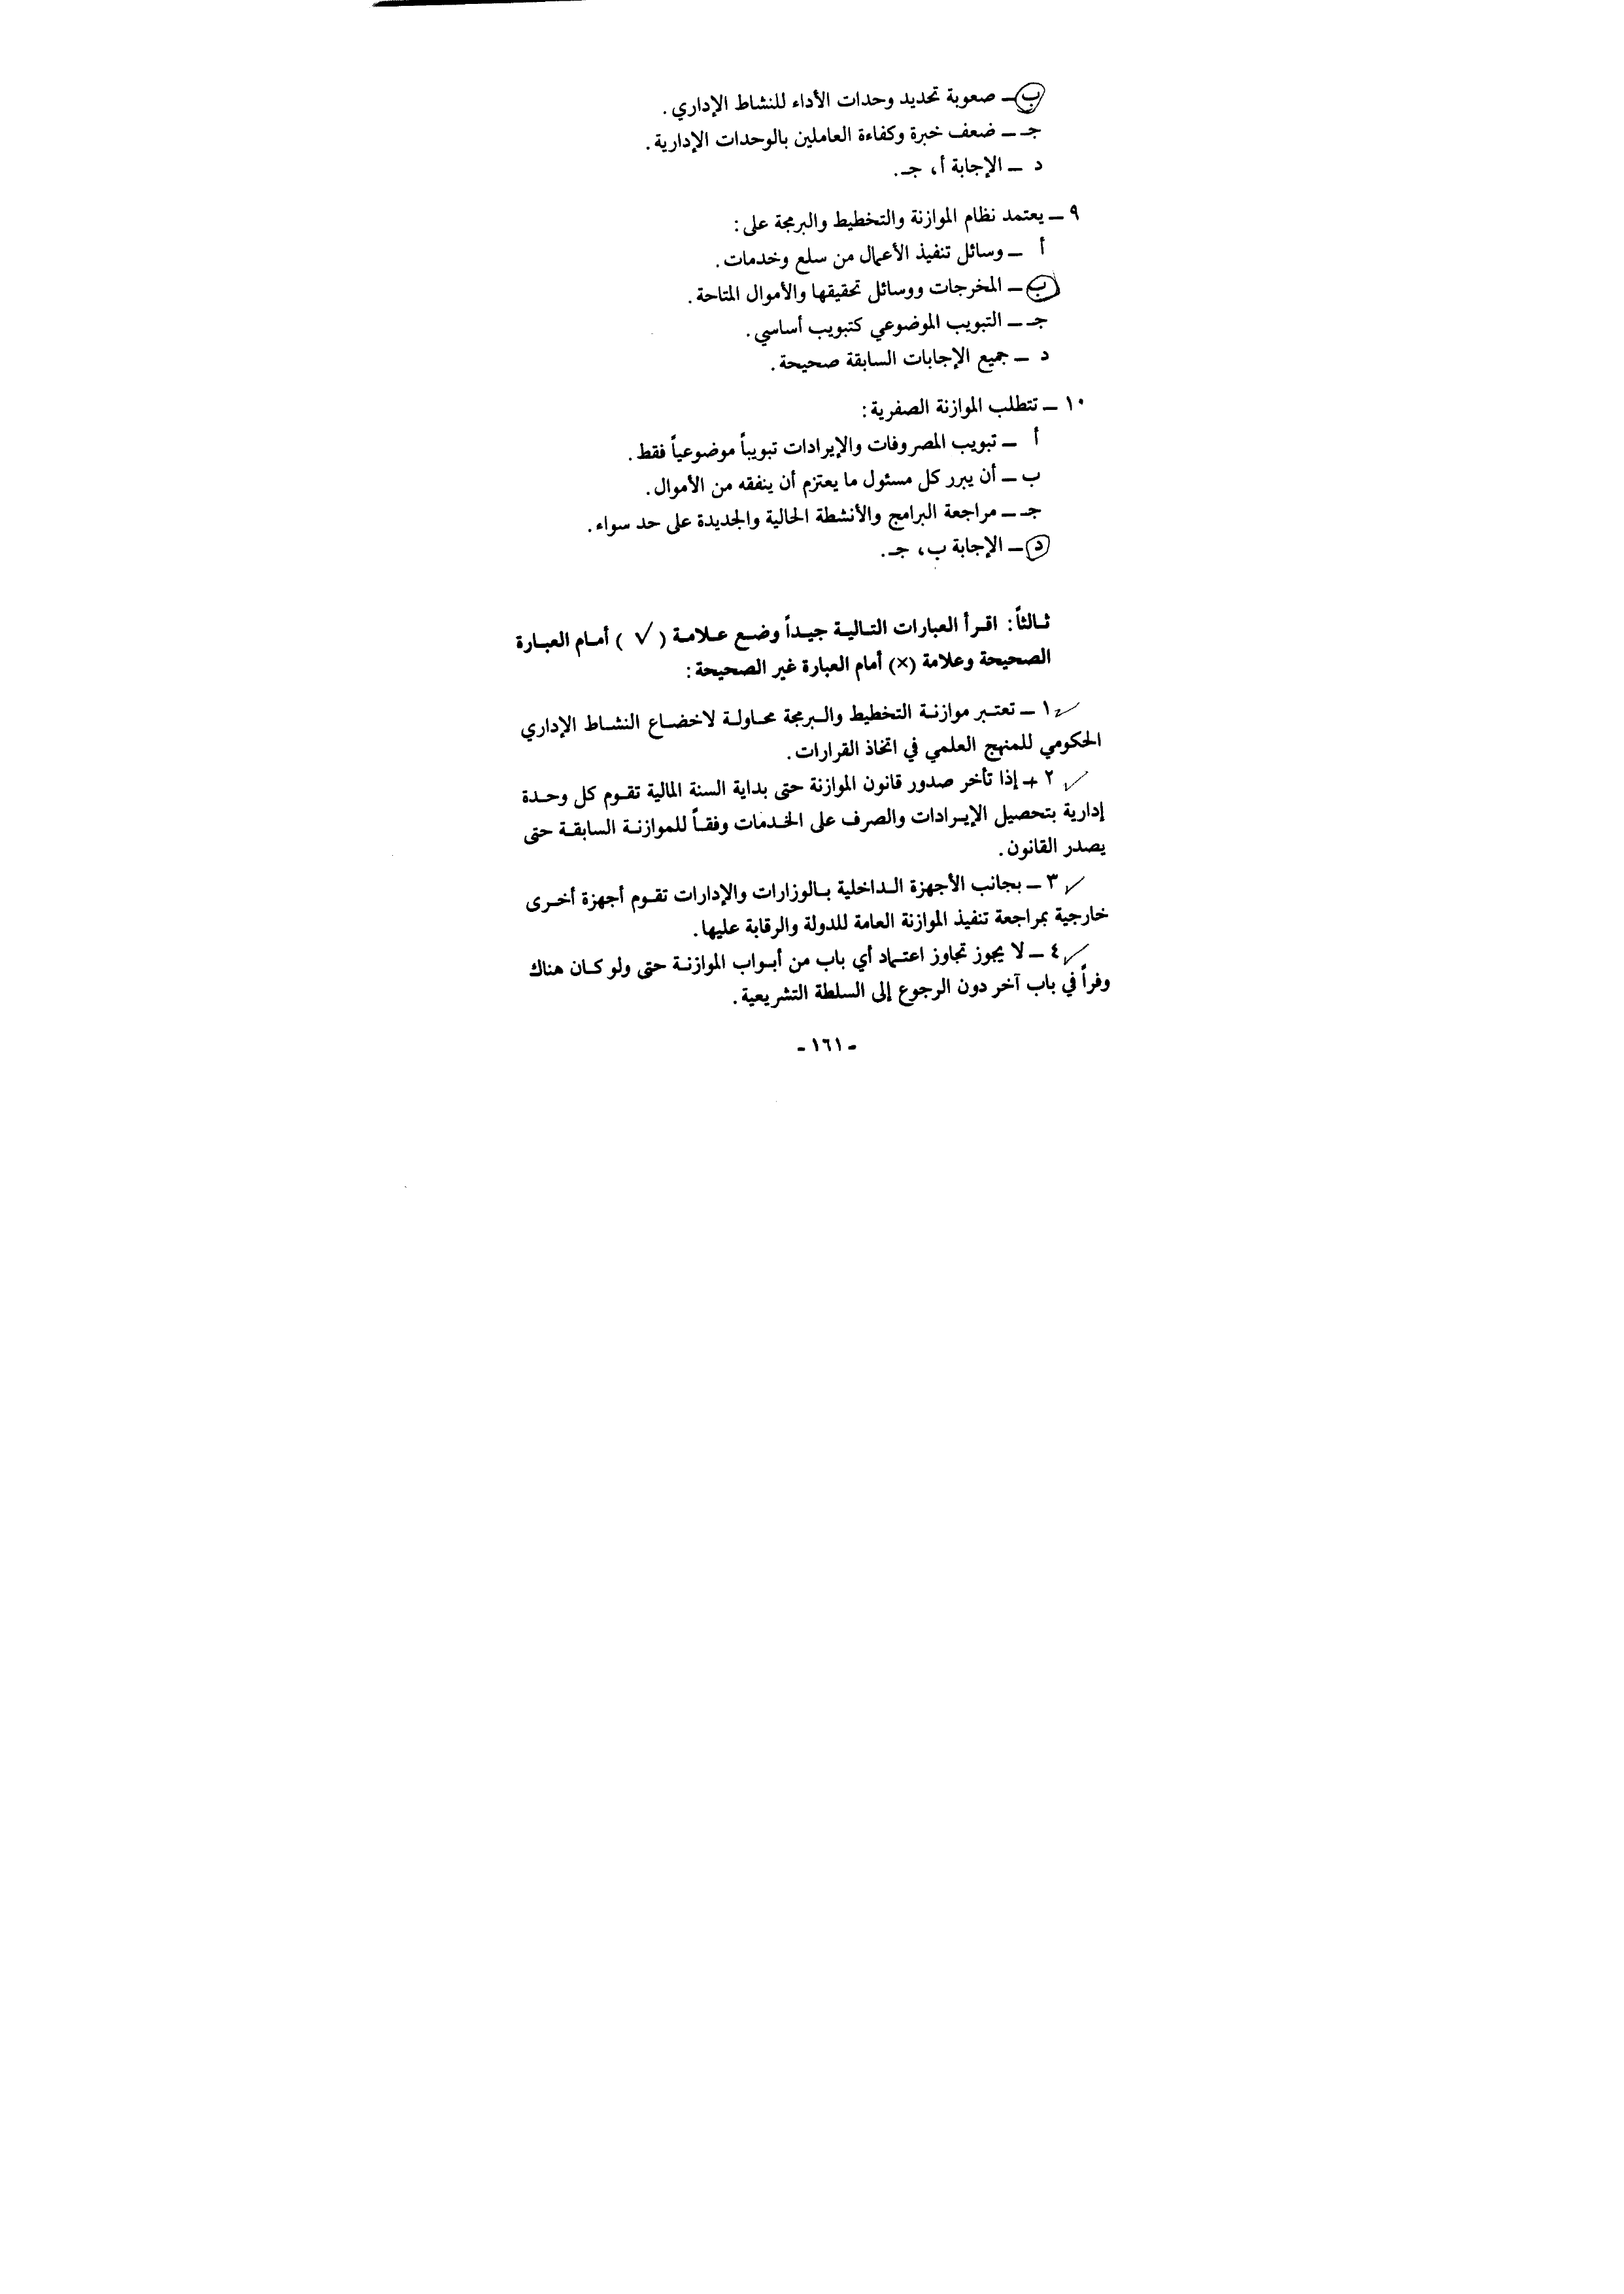 ب ــ صعوبة تحديد وحدات الأداء للنشاط الإداري.
جـ ــ ضعف خبرة وكفاءة العاملين بالوحدات الإدارية.
د ــ الإجابة أ، جـ.
٩ ــ يعتمد نظام الموازنة والتخطيط والبرمجة على:
أ ــ وسائل تنفيذ الأعمال من سلع وخدمات.
ب ــ المخرجات ووسائل تحقيقها والأموال المتاحة.
جـ ــ التبويب الموضوعي كتبويب أساسي.
د ــ جميع الإجابات السابقة صحيحة.
١٠ ــ تتطلب الموازنة الصفرية:
أ ــ تبويب المصروفات والإيرادات تبويباً موضوعياً فقط.
ب ــ أن يبرر كل مسئول ما يعتزم أن ينفقه من الأموال.
جـ ــ مراجعة البرامج والأنشطة الحالية والجديدة على حد سواء.
د ــ الإجابة ب، جـ.
ثـالثاً: اقـرأ العبارات التـاليـة جيـداً وضـع عـلامـة ( √ ) أمـام العبـارة
الصحيحة وعلامة (×) أمام العبارة غير الصحيحة:
✓ ١ ــ تعتـبر موازنـة التخطيط والـبرمجة محـاولـة لاخضـاع النشـاط الإداري
الحكومي للمنهج العلمي في اتخاذ القرارات.
✓ ٢ ــ إذا تأخر صدور قانون الموازنة حتى بداية السنة المالية تقـوم كل وحـدة
إدارية بتحصيل الإيـرادات والصرف على الخـدمات وفقـاً للموازنـة السابقـة حتى
يصدر القانون.
✓ ٣ ــ بجانب الأجهزة الـداخلية بـالوزارات والإدارات تقـوم أجهزة أخـرى
خارجية بمراجعة تنفيذ الموازنة العامة للدولة والرقابة عليها.
✓ ٤ ــ لا يجوز تجاوز اعتـماد أي باب من أبـواب الموازنـة حتى ولو كـان هناك
وفراً في باب آخر دون الرجوع إلى السلطة التشريعية.
ـ ١٦١ ـ